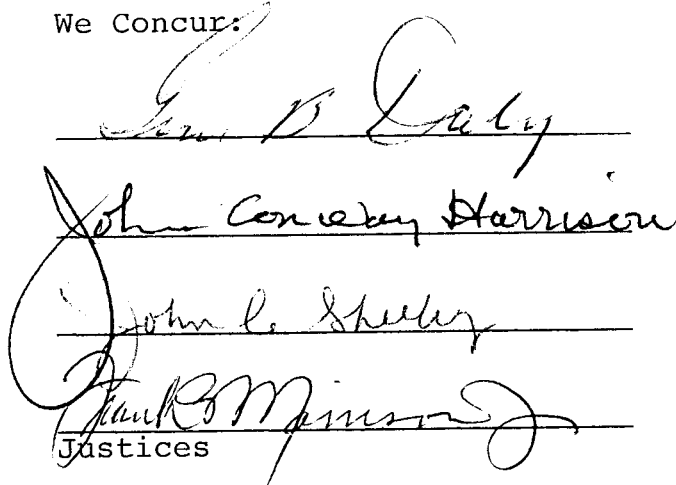 We Concur:
Gene B Daly
John Conway Harrison
John C. Sheehy
Frank B Morrison Jr
Justices